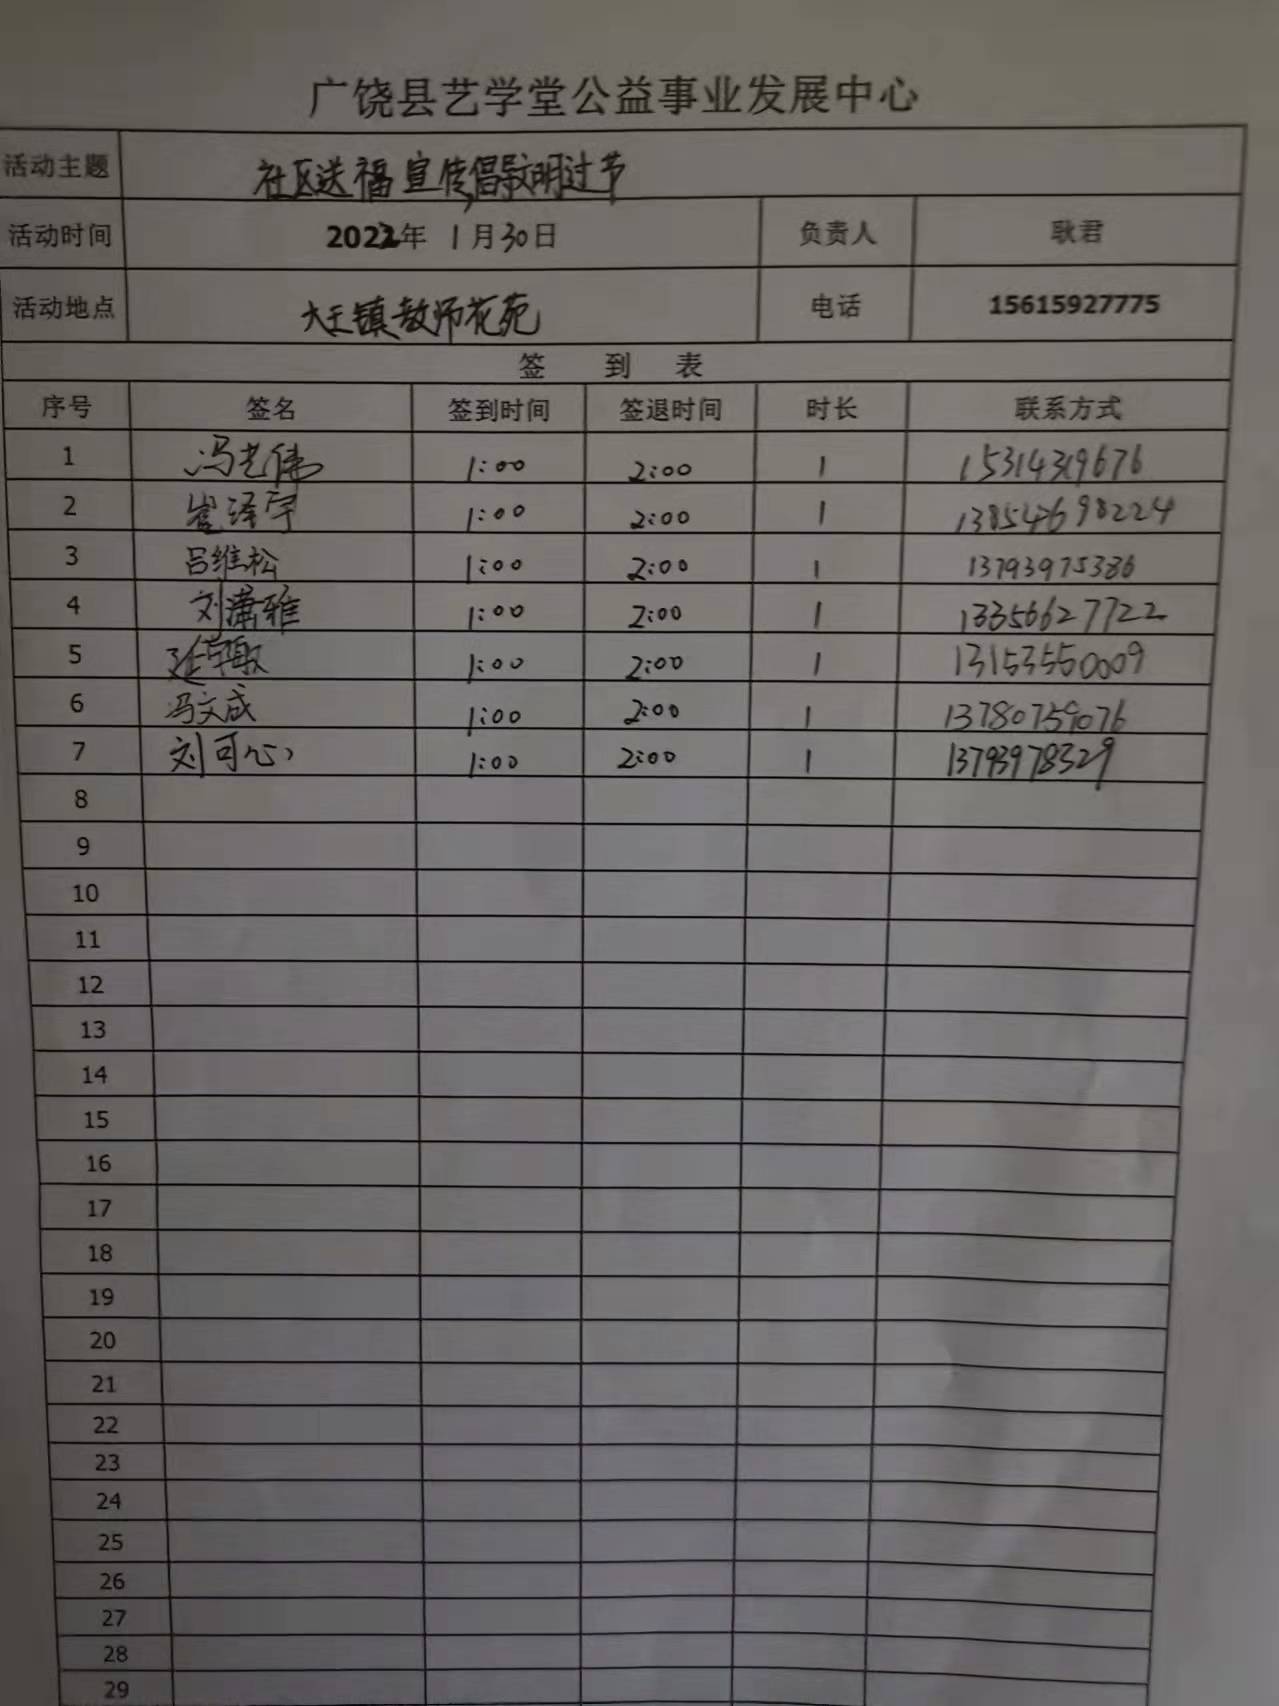 广饶县艺学堂公益事业发展中心
活动主题 社区送福 宣传,倡导文明过节
活动时间 2022年 1月30日 负责人 耿君
活动地点 大王镇教师花苑 电话 15615927775
签 到 表
序号 签名 签到时间 签退时间 时长 联系方式
1 冯艺伟 1:00 2:00 1 15314319676
2 崔泽宇 1:00 2:00 1 13854698224
3 吕维松 1:00 2:00 1 13793975386
4 刘潇雅 1:00 2:00 1 13356627722
5 1:00 2:00 1 13153550009
6 冯文成 1:00 2:00 1 13780759076
7 刘可心 1:00 2:00 1 13793978329
8
9
10
11
12
13
14
15
16
17
18
19
20
21
22
23
24
25
26
27
28
29